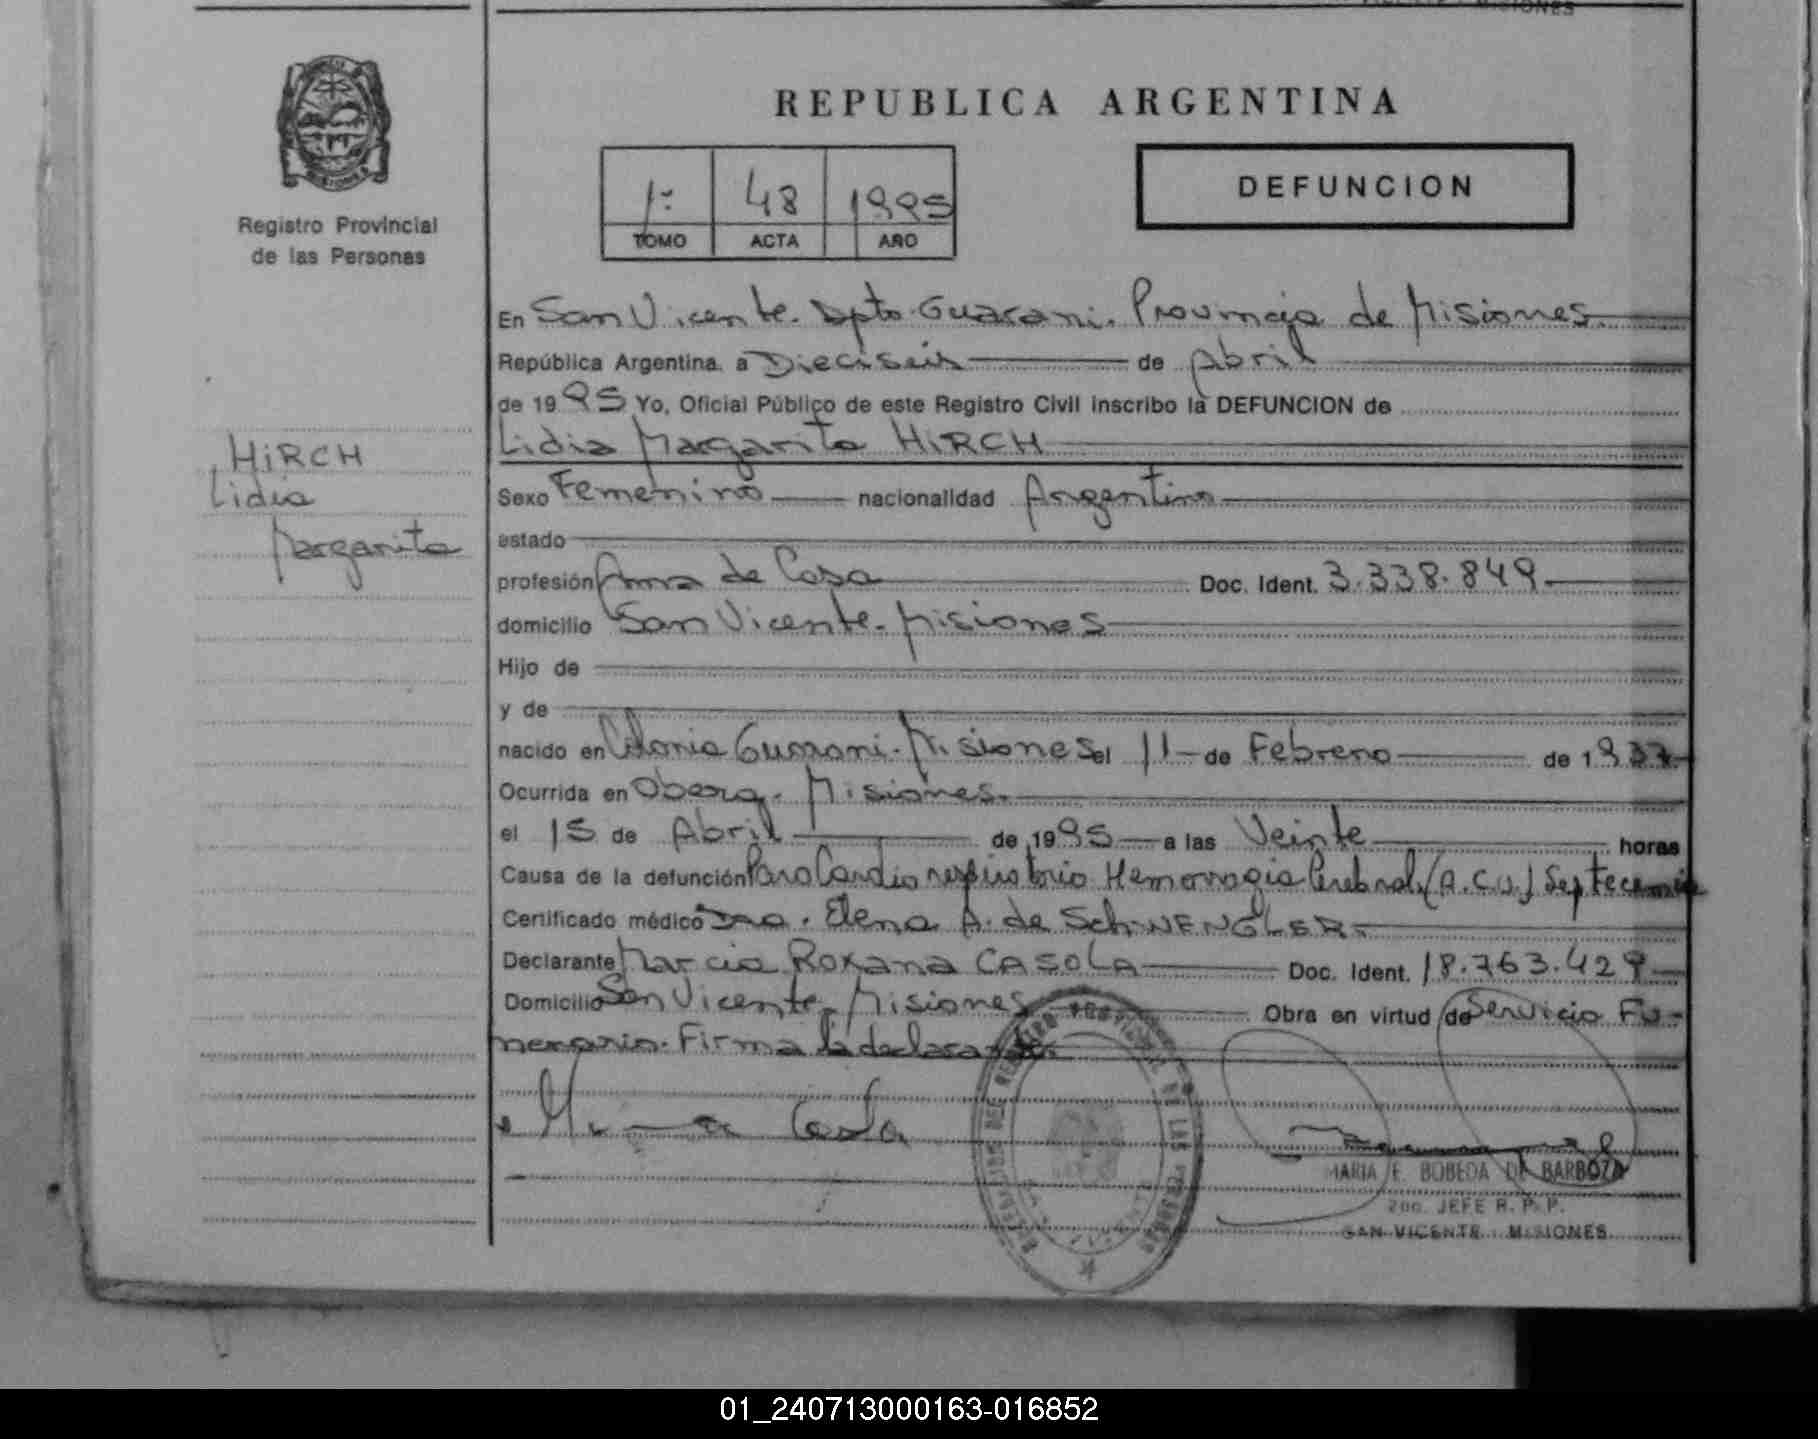 MISIONES
REPUBLICA ARGENTINA
1º 48 1995
TOMO ACTA AÑO
DEFUNCION
Registro Provincial
de las Personas
En San Vicente. Dpto. Guarani. Provincia de Misiones.
República Argentina. a Dieciseis de Abril
de 1995 Yo, Oficial Público de este Registro Civil inscribo la DEFUNCION de
Lidia Margarita HiRCH
HiRCH
Lidia
Margarita
Sexo Femenino nacionalidad Argentina
estado
profesión Ama de Casa Doc. Ident. 3.338.849.
domicilio San Vicente. Misiones
Hijo de
y de
nacido en Colonia Guarani. Misiones el 11 de Febrero de 1937
Ocurrida en Obera. Misiones.
el 15 de Abril de 1995 a las Veinte horas
Causa de la defunción Paro Cardio respiratorio Hemorragia Cerebral. (A.C.V.) Septecemia
Certificado médico Dra. Elena A. de SchWENGLER.
Declarante Marcia Roxana CASOLA Doc. Ident. 18.763.429
Domicilio San Vicente. Misiones Obra en virtud de Servicio Fu-
nerario. Firma la declarante.
MARIA E. BOBEDA DE BARBOZA
2do. JEFE R. P. P.
SAN VICENTE - MISIONES
01_240713000163-016852